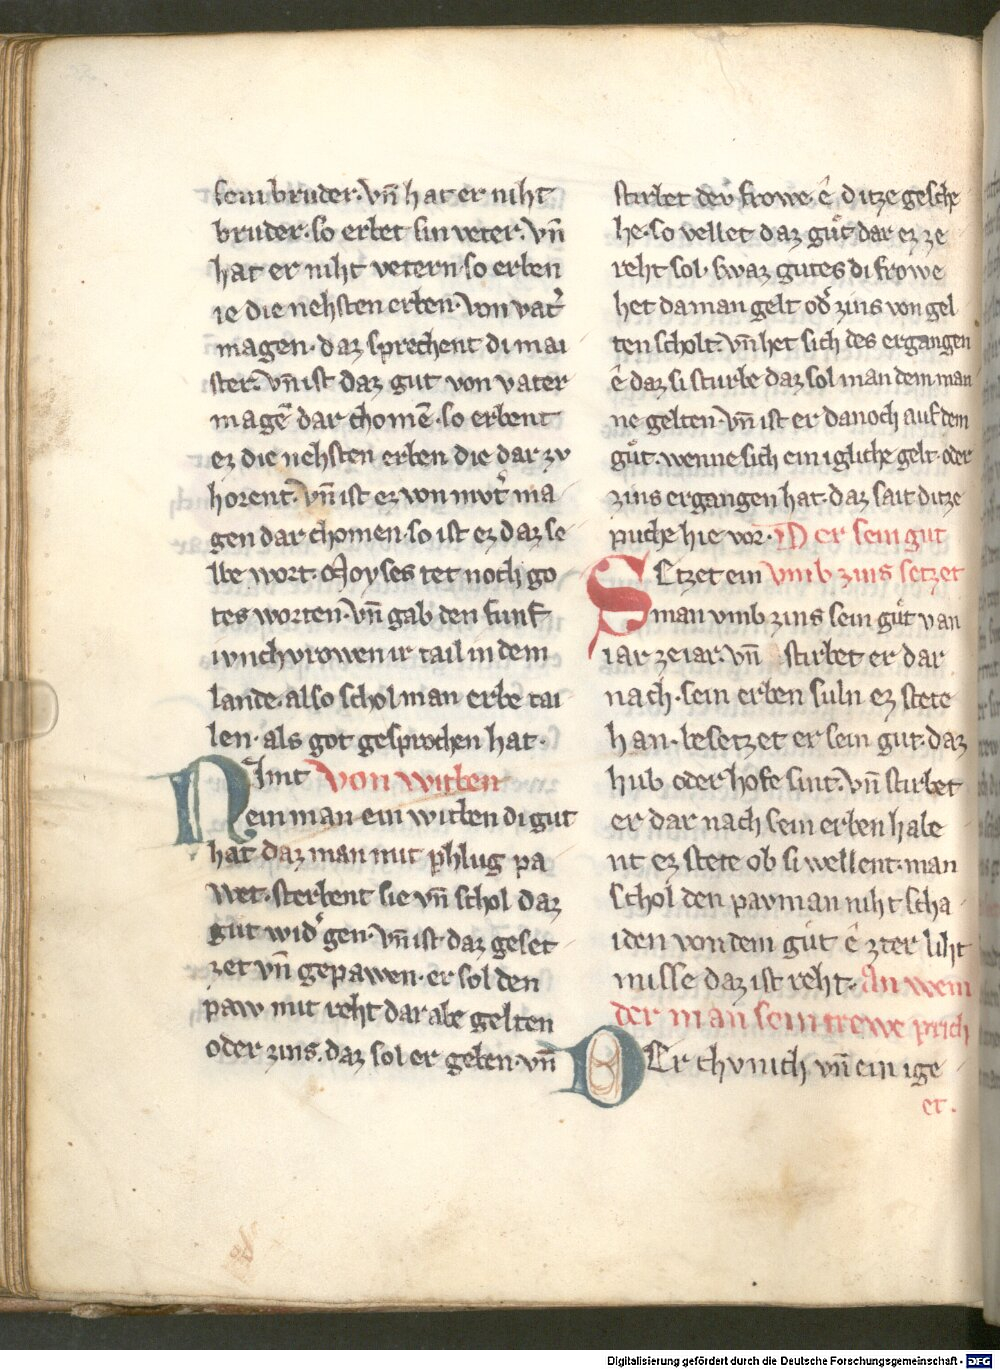 sein bruder. vn̄ hat er niht
bruder. so erbet sin veter. vn̄
hat er niht vetern so erben
ie die nehsten erben. von vat̾
magen. daz sprechent di mai
ster. vn̄ ist daz gut von vater
magē dar chomē. so erbent
ez die nehsten erben die dar zv
horent. vn̄ ist ez von mvt̾ ma
gen dar chomen. so ist ez daz se
lbe wort. Moyses tet noch go
tes worten. vn̄ gab den funf
iunchvrowen ir tail in dem
lande. also schol man erbe tai
len. als got gesprochen hat.
NImt von witben
ein man ein witben di gut
hat daz man mit phlug pa
wet. sterbent sie vn̄ schol daz
gut wid̾ gen. vn̄ ist daz geset
zet vn̄ gepawen. er sol den
paw mit reht dar abe gelten
oder zins. daz sol er geben. vn̄
stirbet dev frowe ê ditze gesche
he. so vellet daz gůt dar ez ze
reht sol. swaz gutes di frowe
het da man gelt od̾ zins von gel
ten scholt. vn̄ het sich des ergangen
ê daz si sturbe daz sol man dem man
ne gelten. vn̄ ist er danoch auf dem
gůt. wenne sich ein igliche gelt. oder
zins ergangen hat. daz sait ditze
puche hie vor. Der sein gut
SEtzet ein vmb zins setzet
man vmb zins sein gůt van
iar ze iar. vn̄ stirbet er dar
nach. sein erben suln ez stete
han. besetzet er sein gut. daz
hub oder hofe sint. vn̄ stirbet
er dar nach sein erben habe
nt ez stete ob si wellent. man
schol den pavman niht scha
iden von dem gůt ê zter liht
misse daz ist reht. An wem
der man sein trewe prich
DEr chvnich vn̄ ein ige
et.
Digitalisierung gefördert durch die Deutsche Forschungsgemeinschaft - DFG